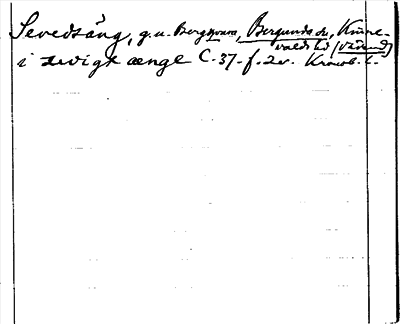 Sevedsäng, g.u. Bergqvara, Bergunda sn, Kinne-
valds hd (Väland)
i sewigx ænge C. 37. f. 2v. Kronob. l.